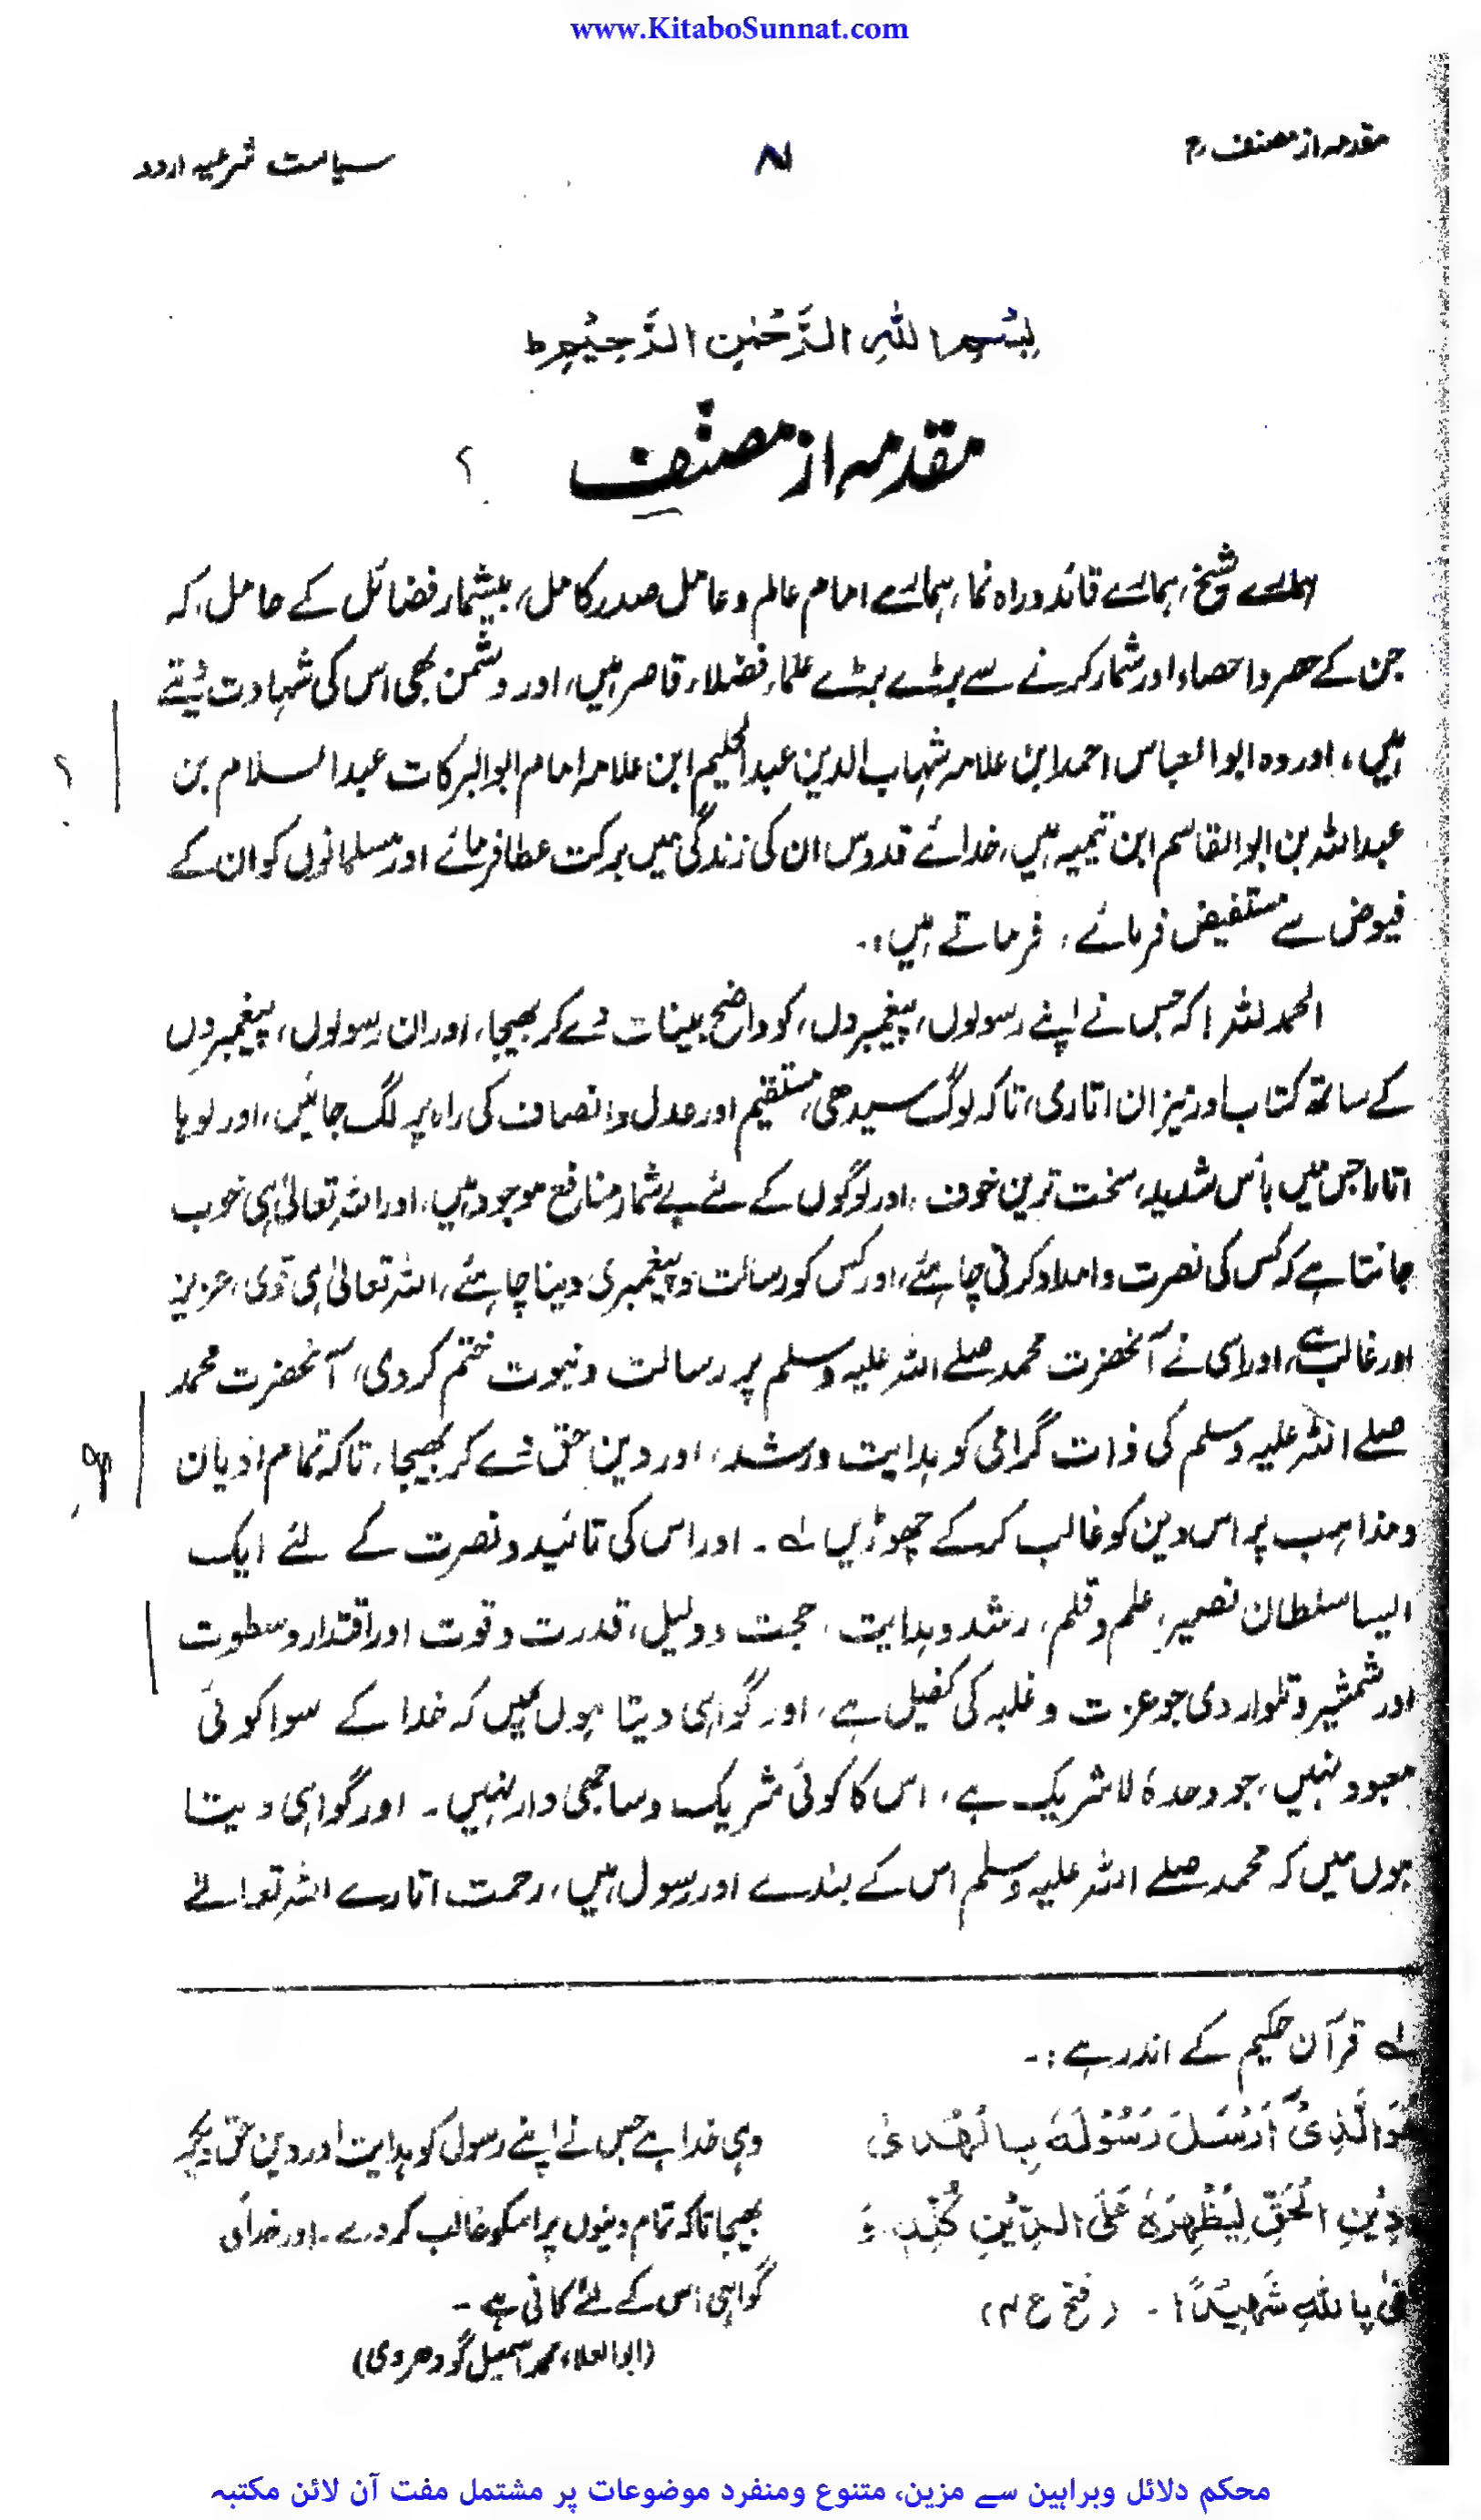 www.KitaboSunnat.com
مقدمہ از مصنف رح
۸
سیاست شرعیہ اردو
بِسْمِ اللّٰهِ الرَّحْمٰنِ الرَّحِيْمِ ط
مقدمہ از مصنِّف
ہمارے شیخ، ہمارے قائد و راہ نما، ہمارے امام عالم و عامل صدر کامل، بیشمار فضائل کے حامل، کہ
جن کے حصر و احصاء اور شمار کرنے سے بڑے بڑے علماء، فضلاء، قاصر ہیں، اور دشمن بھی اس کی شہادت دیتے
ہیں، اور وہ ابو العباس احمد ابن علامہ شہاب الدین عبد الحلیم ابن علامہ امام ابو البرکات عبد السلام بن
عبد اللہ بن ابو القاسم ابن تیمیہ ہیں، خدائے قدوس ان کی زندگی میں برکت عطا فرمائے اور مسلمانوں کو ان کے
فیوض سے مستفیض فرمائے، فرماتے ہیں:۔
الحمد للہ! کہ جس نے اپنے رسولوں، پیغمبروں، کو واضح بینات دے کر بھیجا، اور ان رسولوں، پیغمبروں
کے ساتھ کتاب اور میزان اتاری، تاکہ لوگ سیدھی، مستقیم اور عدل و انصاف کی راہ پر لگ جائیں، اور لوہا
اتارا جس میں بأس شدید، سخت ترین خوف، اور لوگوں کے لئے بے شمار منافع موجود ہیں، اور اللہ تعالیٰ ہی خوب
جانتا ہے کہ کس کی نصرت و امداد کرنی چاہئے، اور کس کو رسالت و پیغمبری دینا چاہئے، اللہ تعالیٰ ہی قوی، عزیز
اور غالب ہے، اور اسی نے آنحضرت محمد صلے اللہ علیہ وسلم پر رسالت و نبوت ختم کر دی، آنحضرت محمد
صلے اللہ علیہ وسلم کی ذات گرامی کو ہدایت و رشد، اور دین حق دے کر بھیجا، تاکہ تمام ادیان
و مذاہب پر اس دین کو غالب کر کے چھوڑیں لہ ۔ اور اس کی تائید و نصرت کے لئے ایک
ایسا سلطان نصیر، علم و قلم، رشد و ہدایت، حجت و دلیل، قدرت و قوت اور اقتدار و سطوت
اور شمشیر و تلوار دی جو عزت و غلبہ کی کفیل ہے، اور گواہی دیتا ہوں میں کہ خدا کے سوا کوئی
معبود نہیں، جو وحدہٗ لا شریک ہے، اس کا کوئی شریک و ساجھی دار نہیں ۔ اور گواہی دیتا
ہوں میں کہ محمد صلے اللہ علیہ وسلم اس کے بندے اور رسول ہیں، رحمت اتارے اللہ تعالٰے
لہ قرآن حکیم کے اندر ہے :۔
هُوَ الَّذِیْٓ اَرْسَلَ رَسُوْلَهٗ بِالْهُدٰی
دِیْنِ الْحَقِّ لِیُظْهِرَهٗ عَلَی الدِّیْنِ کُلِّهٖ وَ
فٰی بِاللّٰهِ شَهِیْدًا ۔ (فتح ع ۴)
وہی خدا ہے جس نے اپنے رسول کو ہدایت اور دین حق دیکر
بھیجا تاکہ تمام دینوں پر اسکو غالب کر دے ۔ اور خدا کی
گواہی اس کے لئے کافی ہے ۔
(ابو العلاء محمد اسمٰعیل گودھروی)
محکم دلائل وبراہین سے مزین، متنوع ومنفرد موضوعات پر مشتمل مفت آن لائن مکتبہ